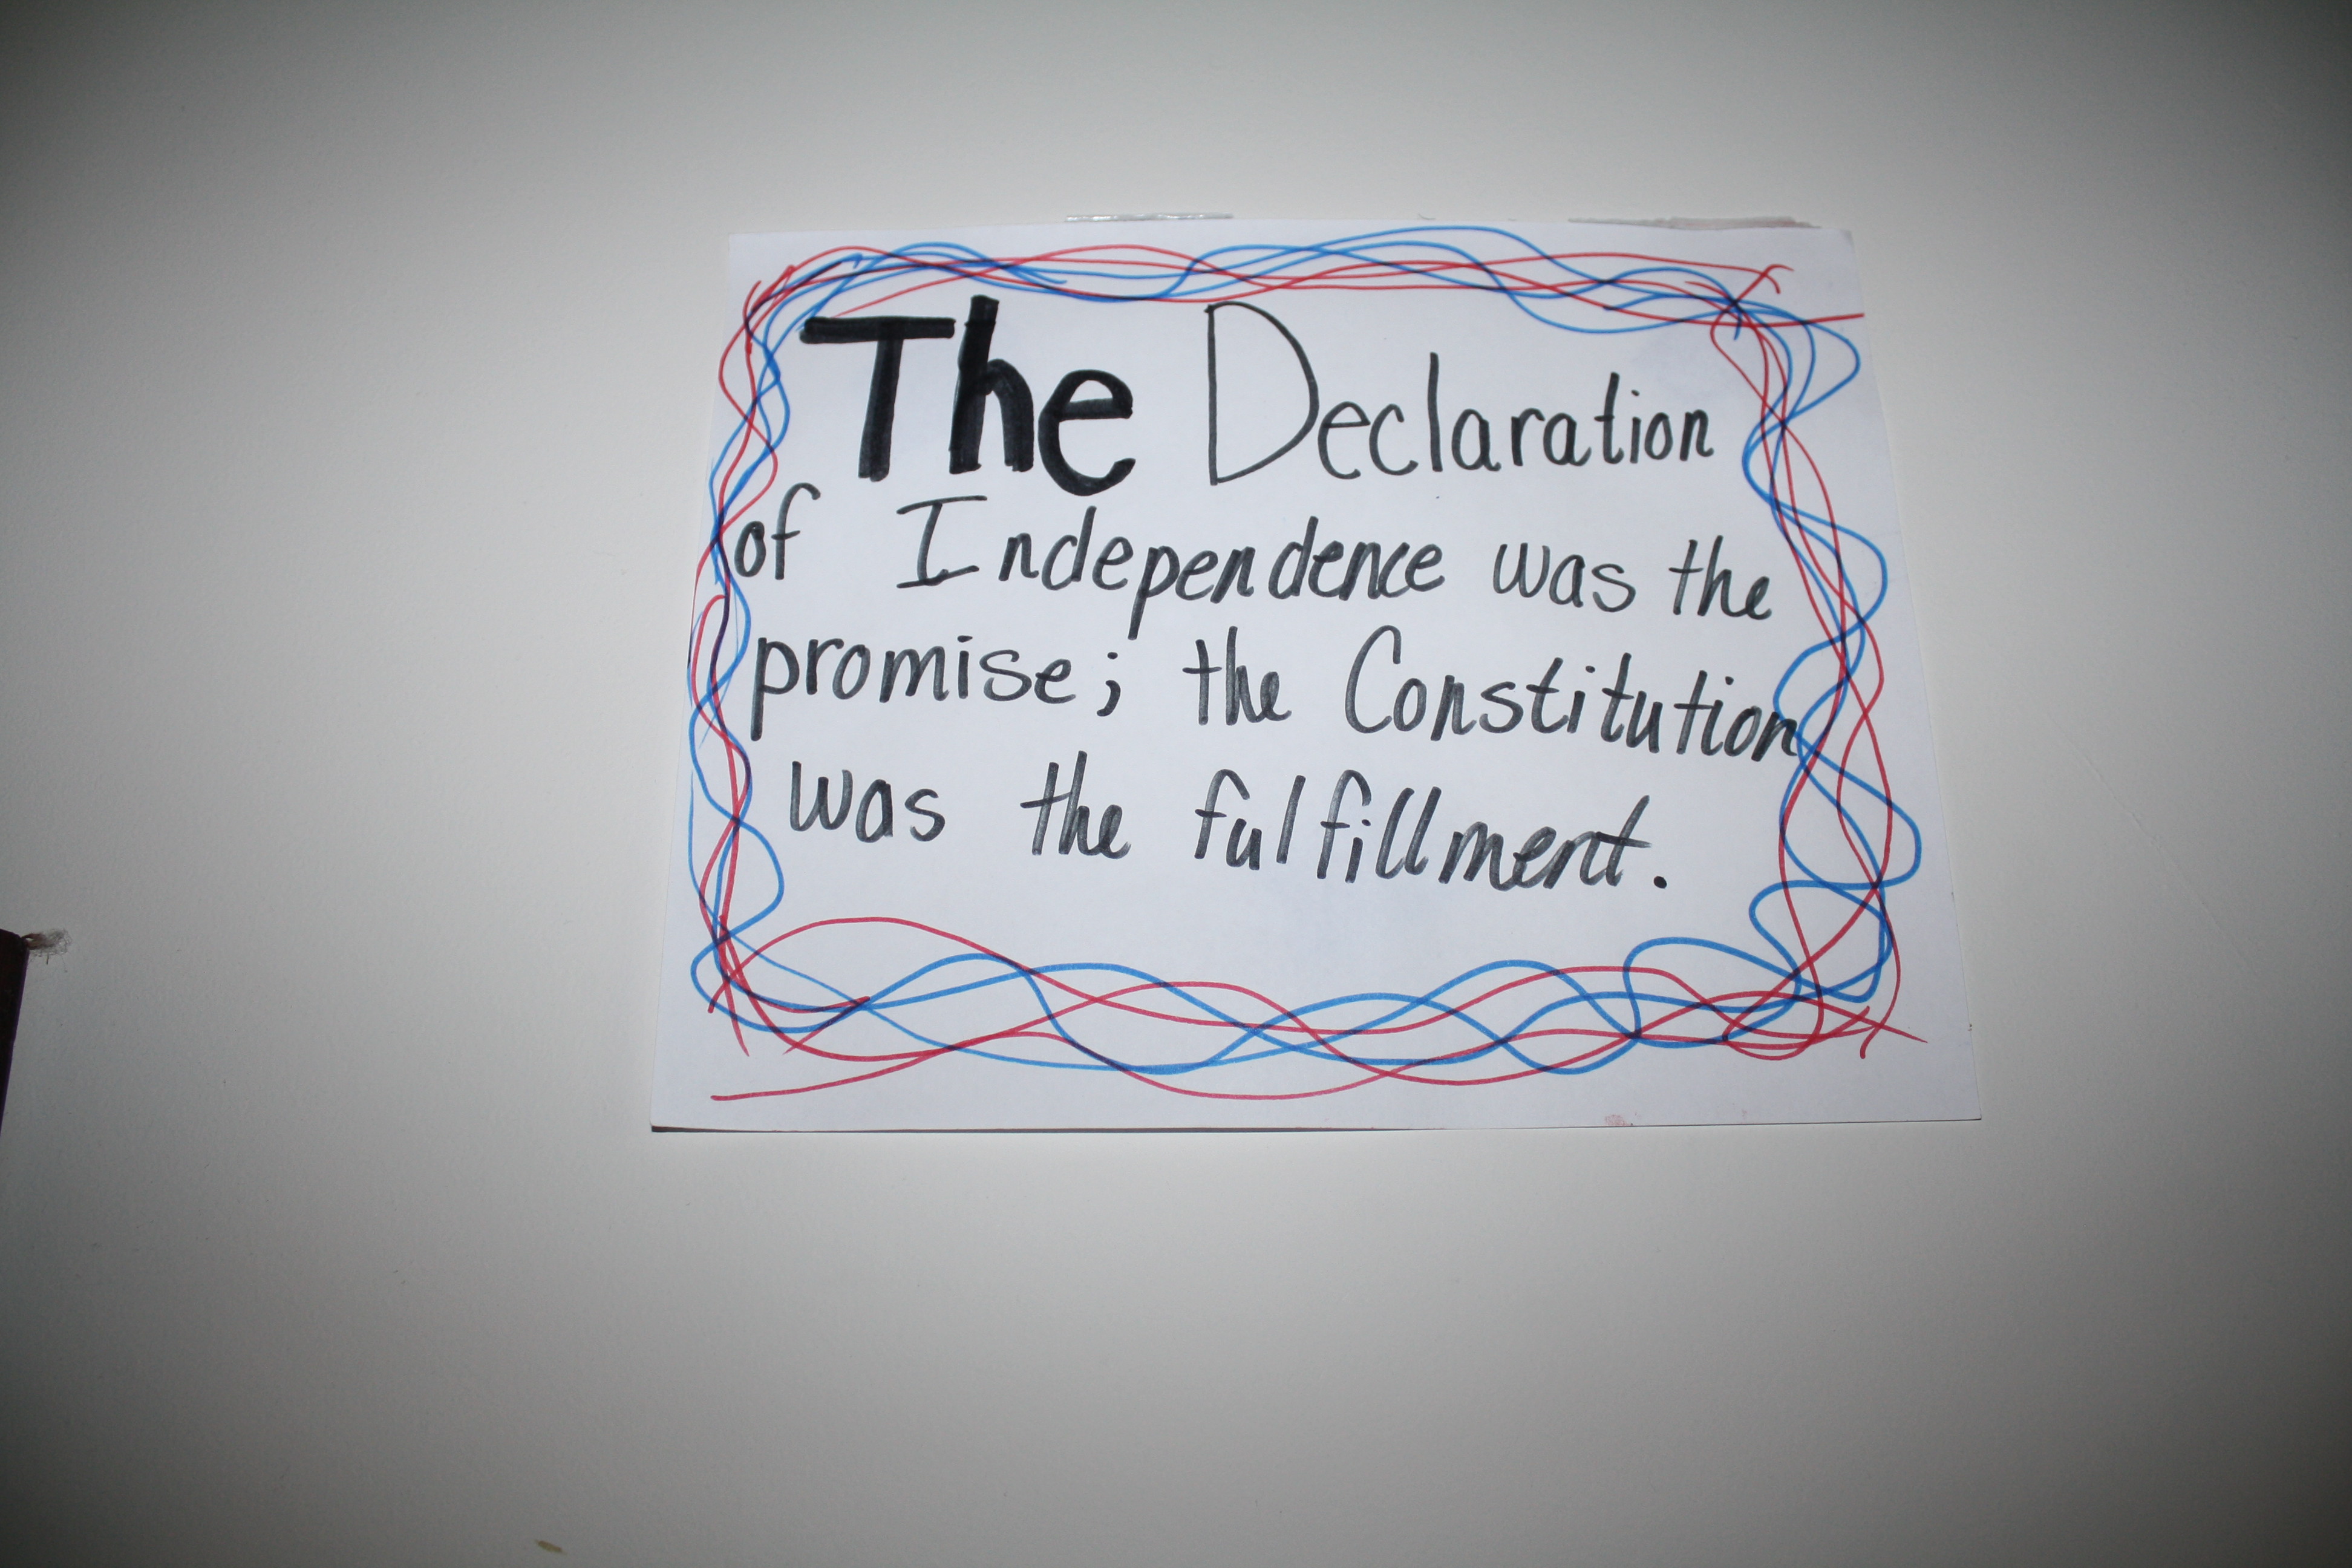 The Declaration
of Independence was the
promise; the Constitution
was the fulfillment.